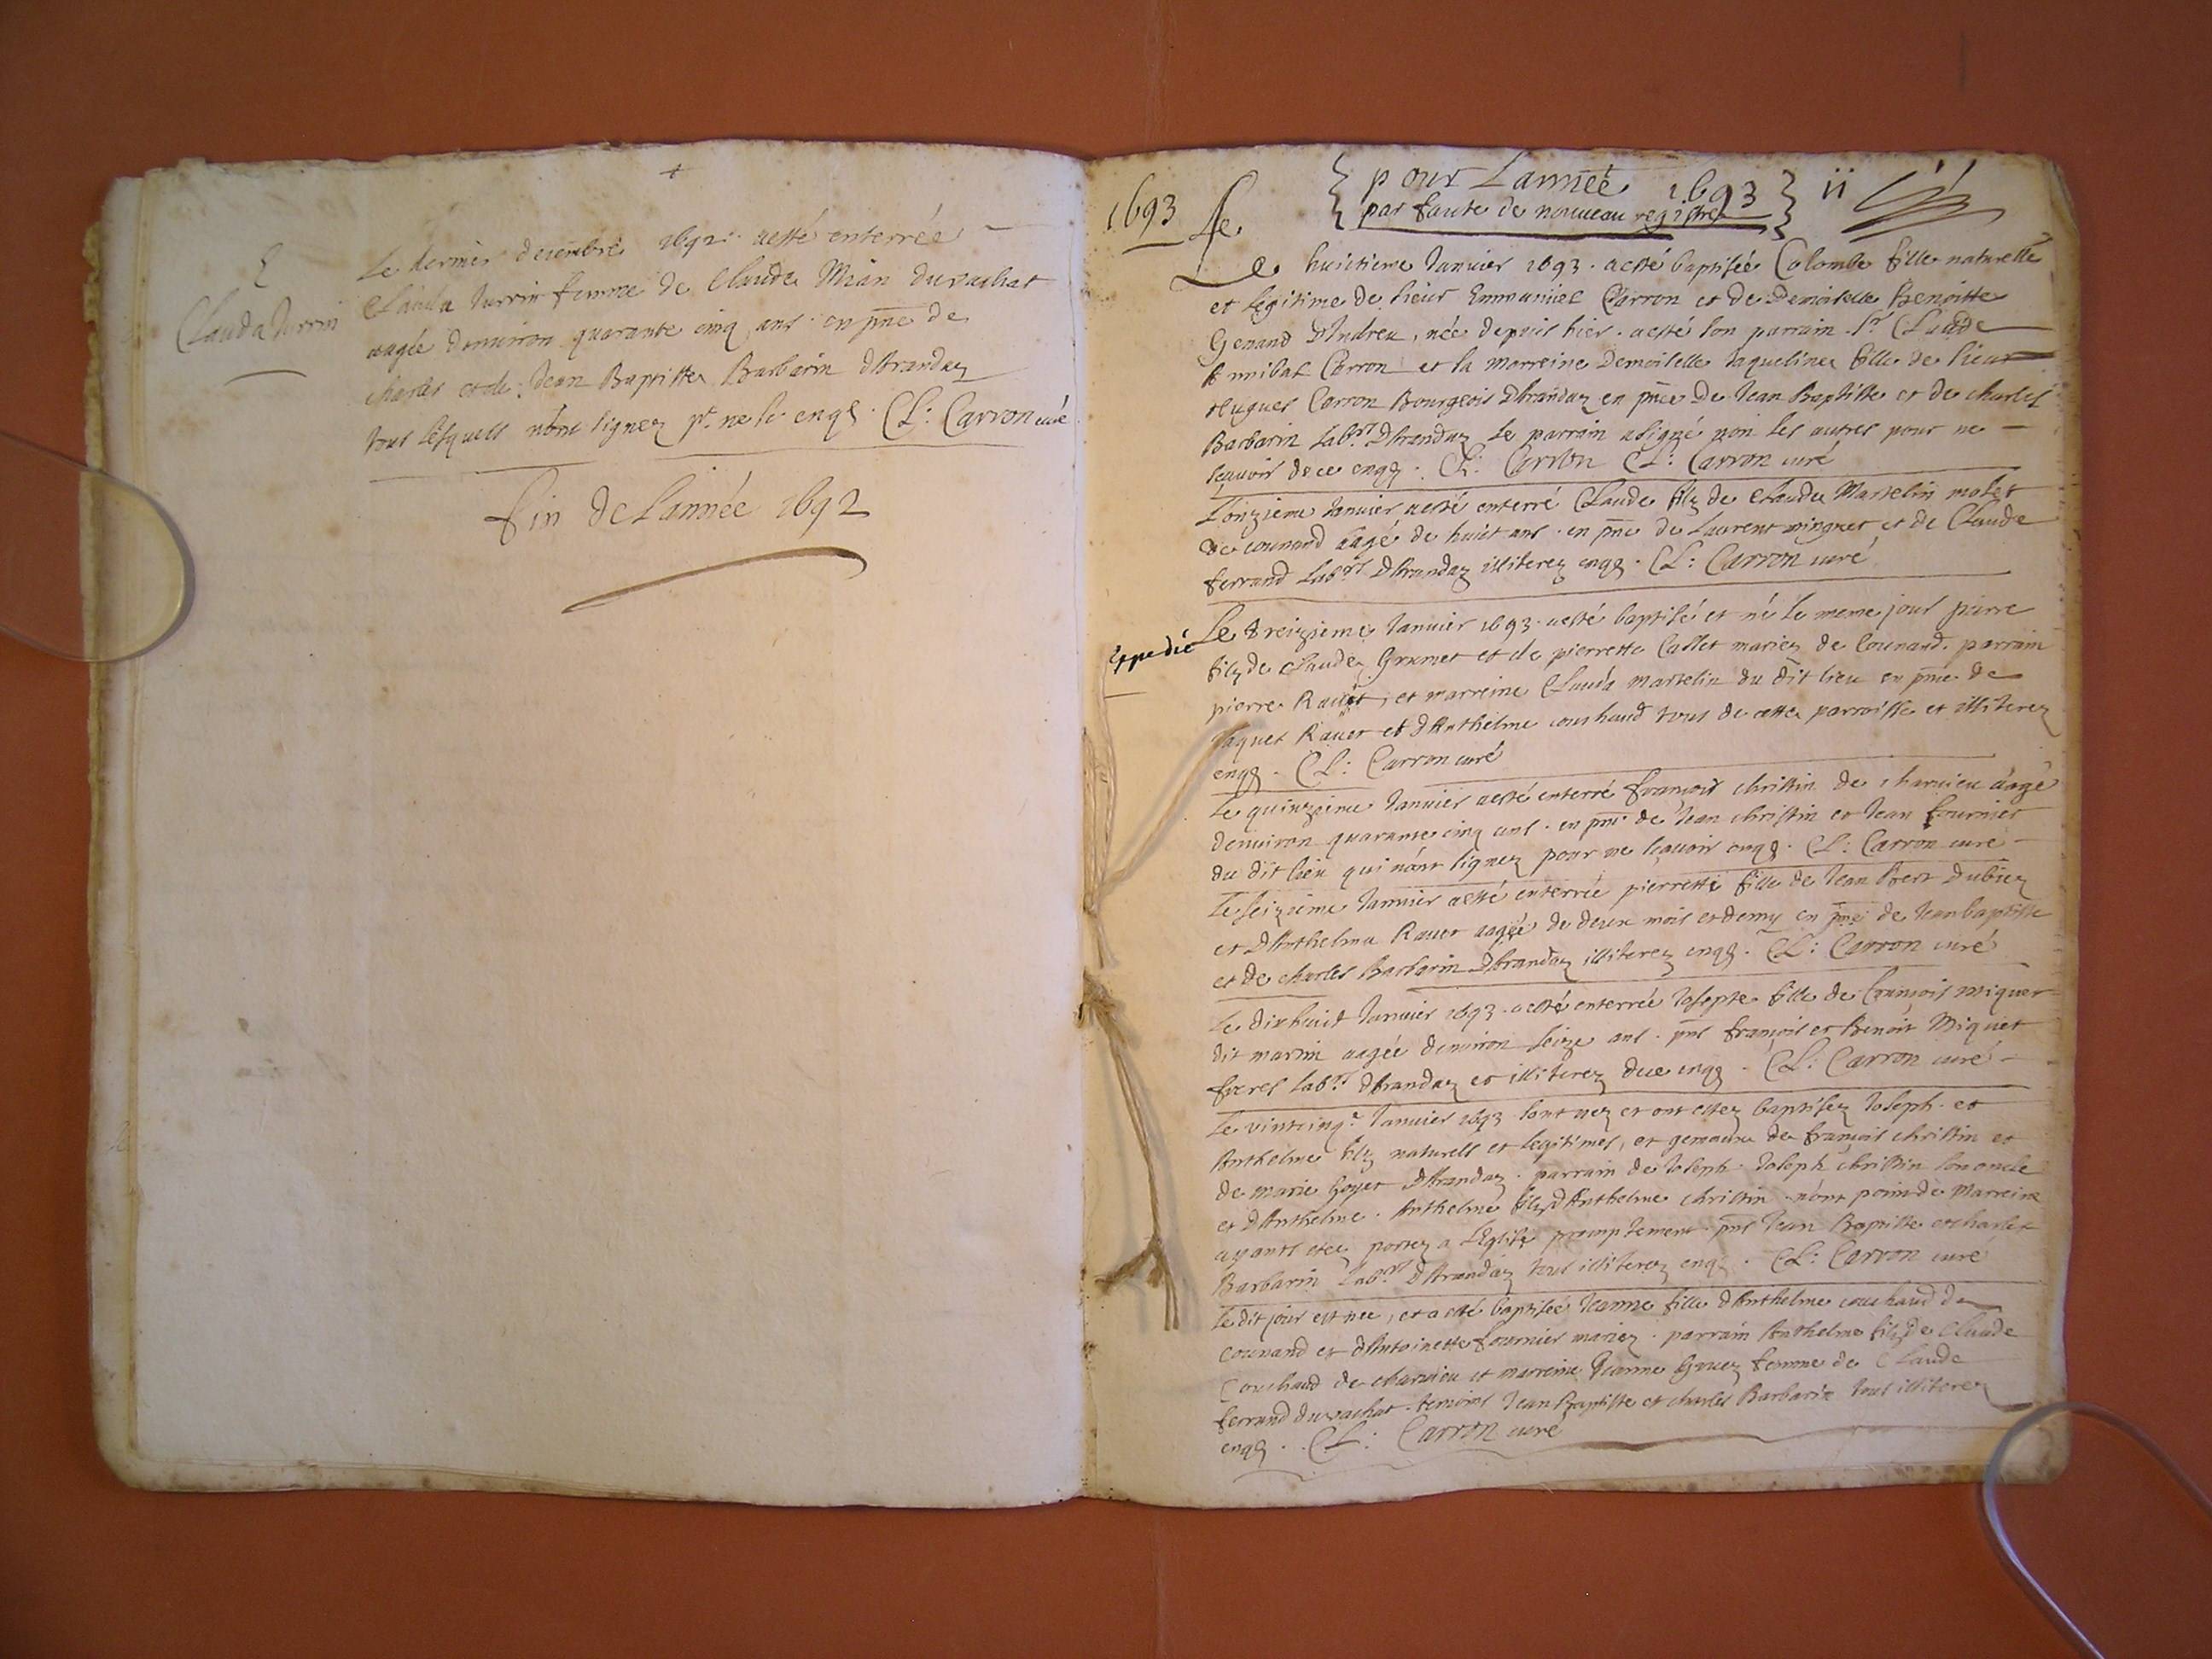 +
E
Clauda Jurrin
Le dernier decembre 1692. a esté enterrée
Clauda Jurrin femme de Claude Mian du vachat
aagée denviron quarante cinq ans. en pnce de
charles et de Jean Baptiste Barbarin dBrandaz
tous lesquels nónt signez pr. ne le enqs. Cl: Carron curé
fin de Lannée 1692
1693
{ pour Lannéé 1693 }
{ par faute de nouueau registre }
ii
Le
Le huictieme Januier 1693. a esté baptisée Colombe fille naturelle
et legitime de sieur Emmanuel Carron et de Demoiselle Benoitte
Genand dIndreu, née depuis hier. a esté son parrain. Sr. Claude
Annibal Carron et la marreine Demoiselle Jaqueline fille de sieur
Hugues Carron Bourgeois dBrandaz en pnce de Jean Baptiste et de charles
Barbarin Labrs. DBrandaz le parrain a signé non les autres pour ne
scauoir de ce enqs. Cl: Carron Cl: Carron curé
L'onzieme Januier a esté enterré Claude filz de Claude Martelin molet
de counand aagé de huict ans. en pnce de Laurent minguet et de Claude
ferrand Labrs. DBrandaz illiterez enqs. Cl: Carron curé
Exppedié
Le treizieme Januier 1693. a esté baptisé et né le meme jour pierre
filz de Claude Grumet et de pierrette Callet mariez de Counand. parrain
pierre Rauet, et marreine Clauda martelin du dit lieu en pnce de
Jaques Rauet et dAnthelme couchaud tous de cette parroisse et illiterez
enqs. Cl: Carron curé
Le quinzieme Januier a esté enterré françois christin de charuieu aagé
denuiron quarante cinq ans. en pnce de Jean christin et Jean fournier
du dit lieu qui nónt signez pour ne scauoir enqs. Cl: Carron curé
Le seizieme Januier a esté enterrée pierrette fille de Jean
et dAnthelma Rauet aagée de deux mois et demy en pnce de Jean baptiste
et de charles Barbarin dBrandaz illiterez enqs. Cl: Carron curé
Le dixhuict Januier 1693. a esté enterrée Josepte fille de françois miquet
dit martin aagée denuiron seize ans. pns françois et Benoit Miquet
freres Labrs. dBrandaz et illiterez de ce enqs. Cl: Carron curé
Le vintcinqe. Januier 1693 sont nez et ont estez baptisez Joseph. et
Anthelme filz naturels et legitimes, et gemeaux de françois christin et
de marie Goyet dBrandaz. parrain de Joseph. Joseph christin son oncle
et dAnthelme. Anthelme filz dAnthelme christin. nónt poin de marreine
ayants etez portez a lEglise promptement. pns Jean Baptiste et charles
Barbarin Labrs. DBrandaz tous illiterez enqs. Cl: Carron curé
Le dit jour est née, et a esté baptisée Jeanne fille dAnthelme couchaud de
Counand et dAntoinette fournier mariez. parrain Anthelme filz de Claude
Couchaud de charuieu et marreine Jeanne femme de Claude
ferrand du vachat. temoins Jean Baptiste et charles Barbarin tous illiterez
enqs. Cl: Carron curé